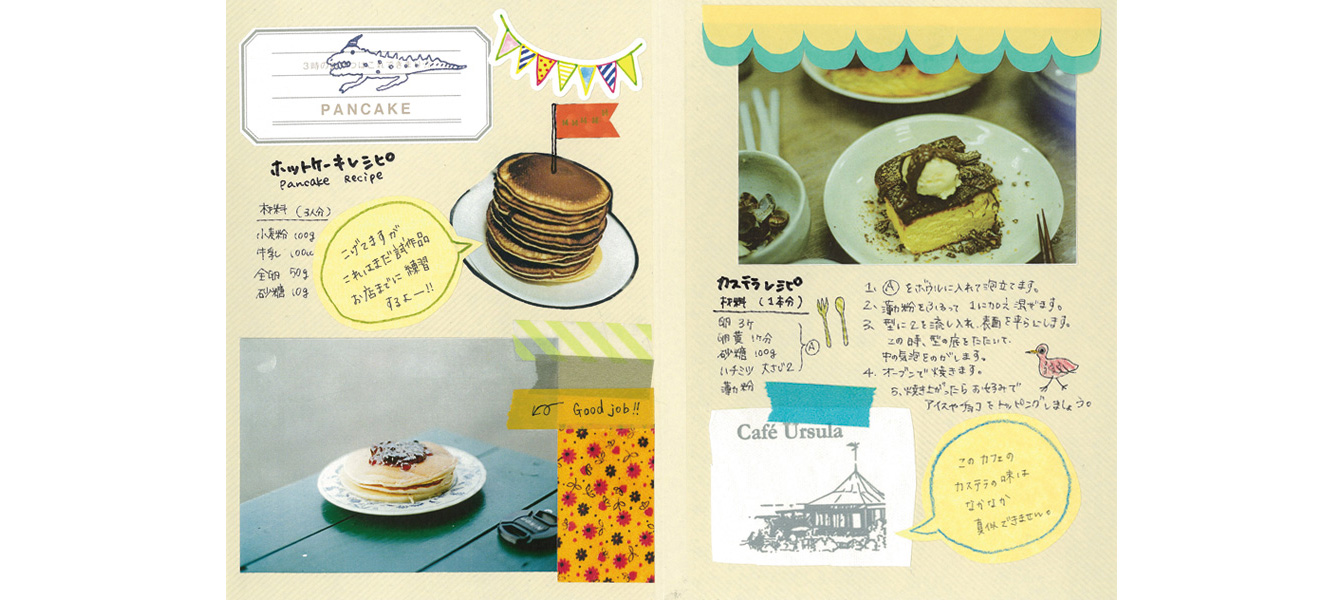 PANCAKE
ホットケーキレシピ
Pancake Recipe
材料 (3人分)
小麦粉 100g
牛乳 100cc
全卵 50g
砂糖 10g
こげてますが、
これはまだ試作品
お店までに練習
するよー!!
Good job!!
カステラレシピ
材料 (1本分)
卵 3ケ
砂糖 100g
ハチミツ 大さじ2
薄力粉
A
1. Ⓐをボウルに入れて泡立てます。
2. 薄力粉をふるって 1に加え混ぜます。
3. 型に2を流し入れ、表面を平らにします。
この時、型の底をたたいて、
中の気泡をのがします。
4. オーブンで焼きます。
5. 焼き上がったらお好みで
アイスやチョコをトッピングしましょう。
Café Ursula
このカフェの
カステラの味は
なかなか
真似できません。